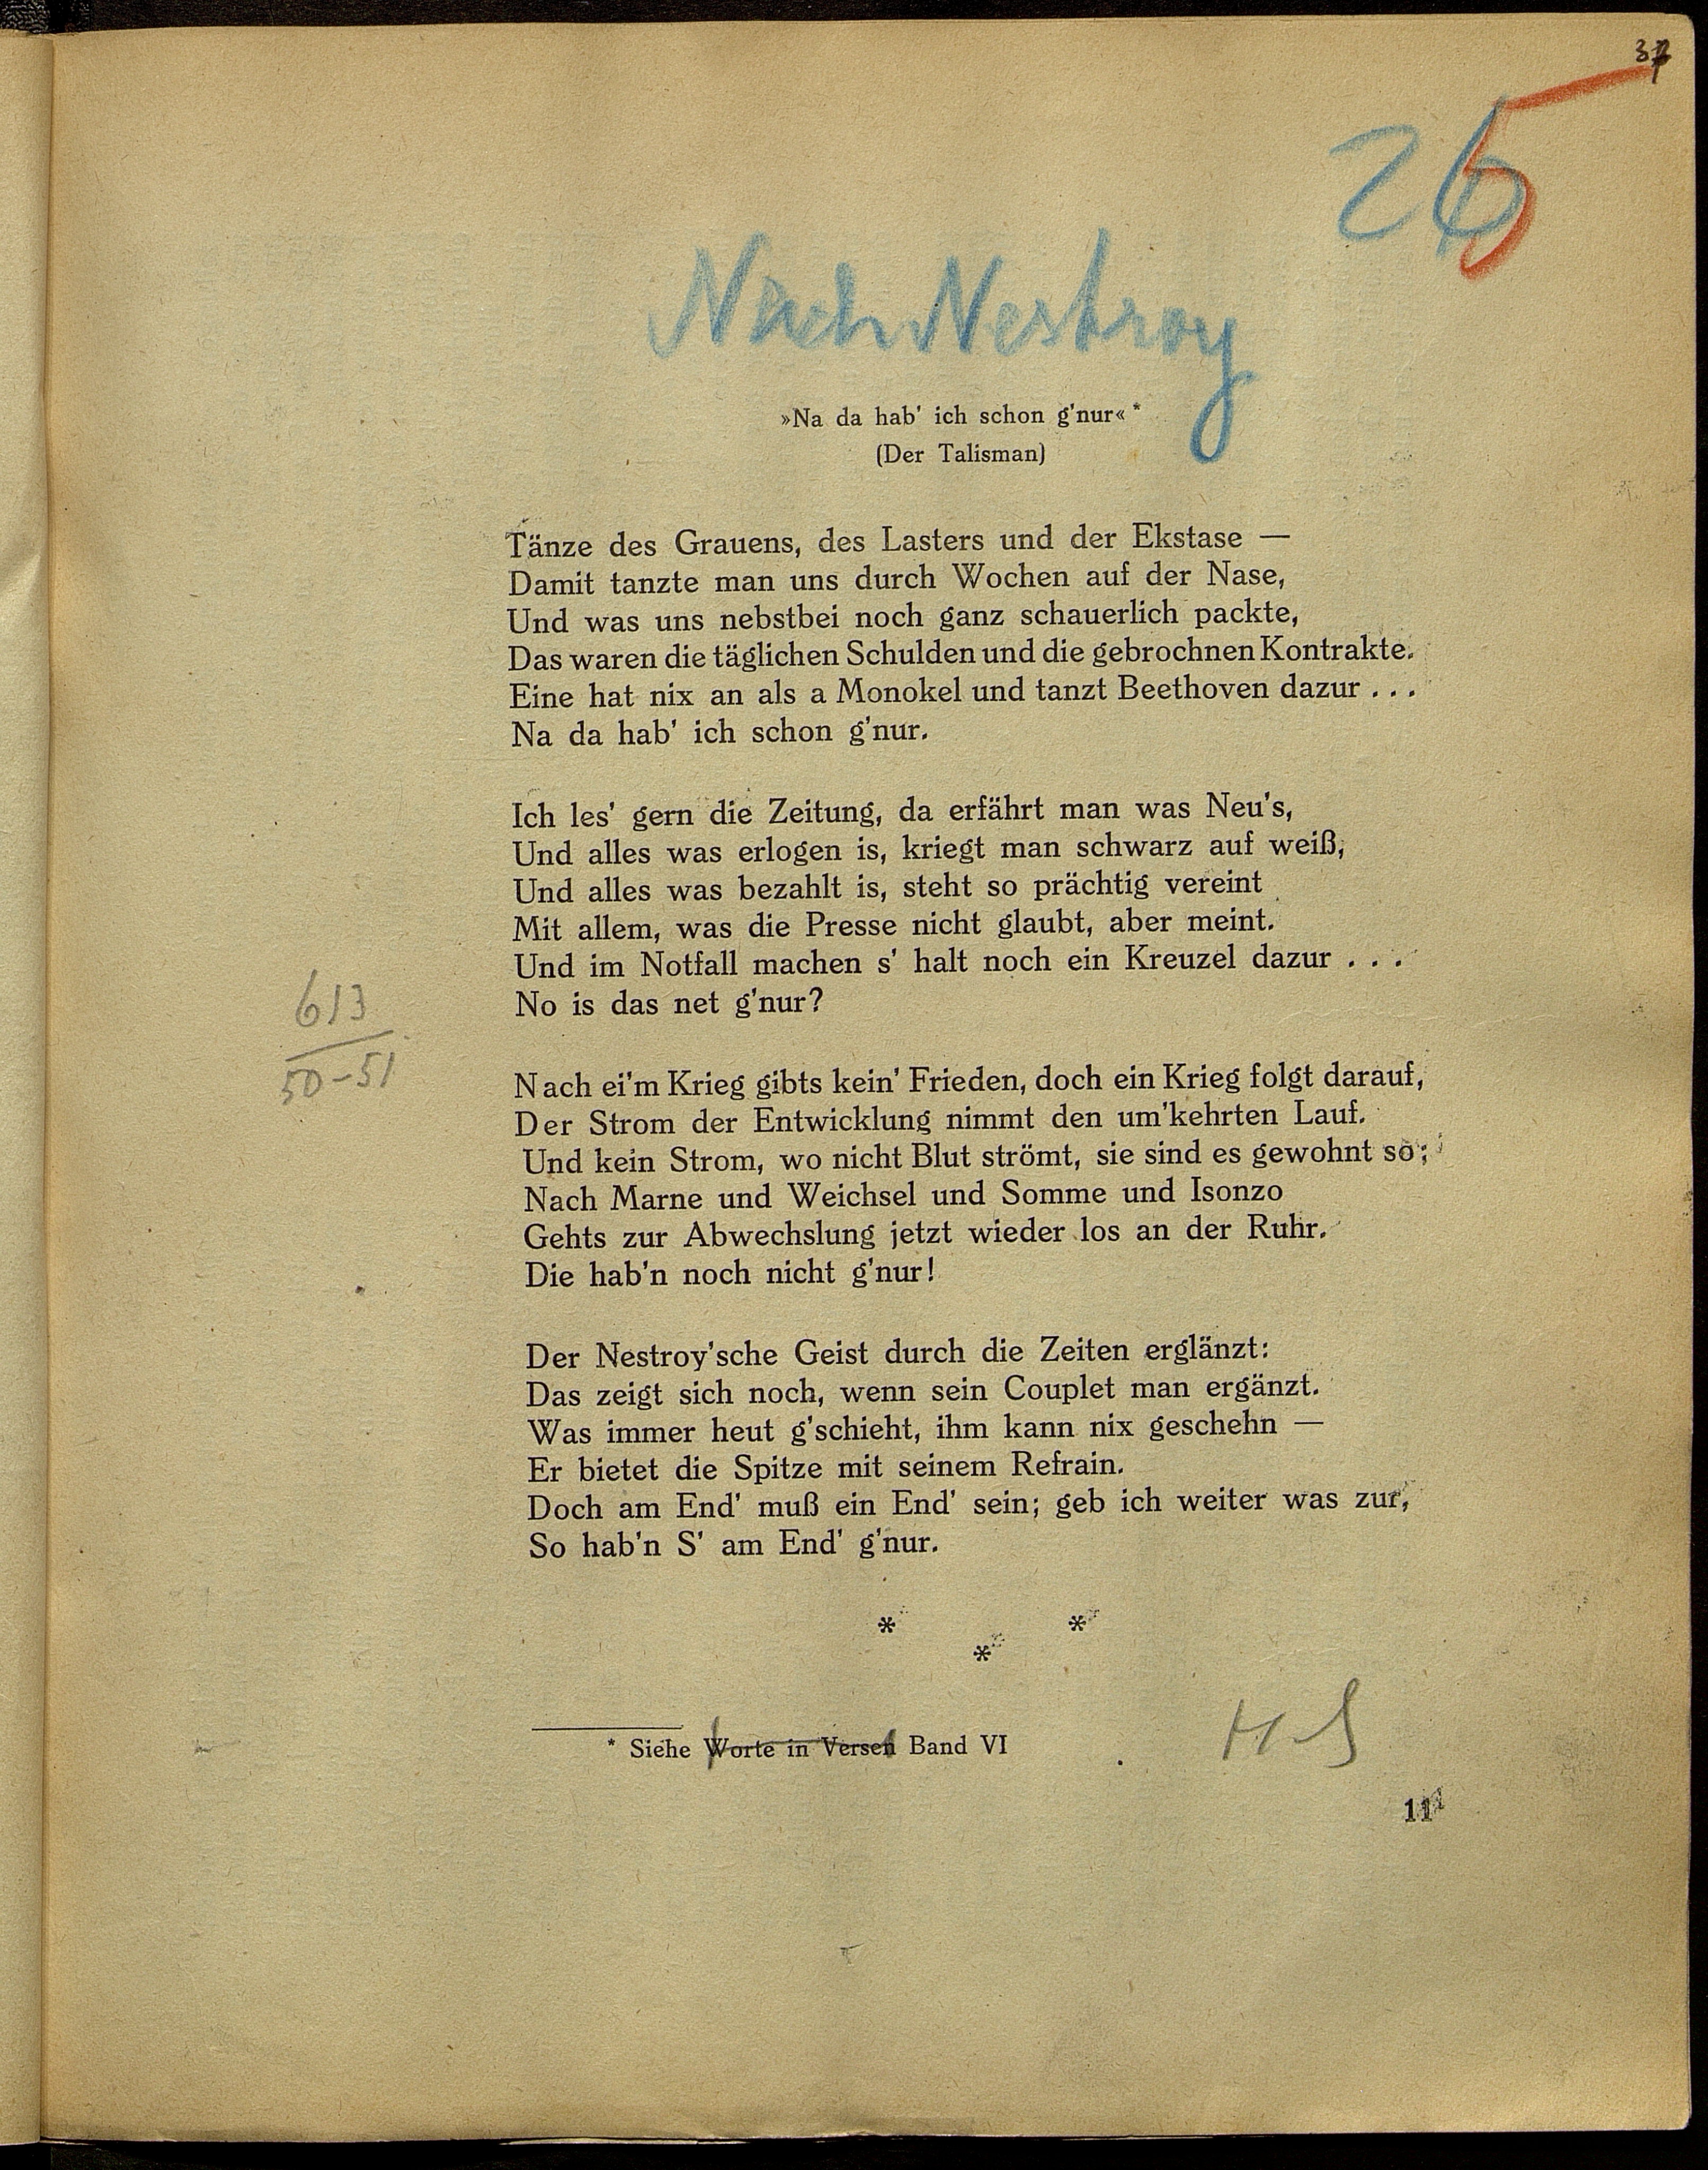 26
5
Nach Nestroy
»Na da hab' ich schon g'nur« *
(Der Talisman)
Tänze des Grauens, des Lasters und der Ekstase —
Damit tanzte man uns durch Wochen auf der Nase,
Und was uns nebstbei noch ganz schauerlich packte,
Das waren die täglichen Schulden und die gebrochnen Kontrakte.
Eine hat nix an als a Monokel und tanzt Beethoven dazur . . .
Na da hab' ich schon g'nur.
Ich les' gern die Zeitung, da erfährt man was Neu's,
Und alles was erlogen is, kriegt man schwarz auf weiß,
Und alles was bezahlt is, steht so prächtig vereint
Mit allem, was die Presse nicht glaubt, aber meint.
Und im Notfall machen s' halt noch ein Kreuzel dazur . . .
No is das net g'nur?
613
50-51
Nach ei'm Krieg gibts kein' Frieden, doch ein Krieg folgt darauf,
Der Strom der Entwicklung nimmt den um'kehrten Lauf.
Und kein Strom, wo nicht Blut strömt, sie sind es gewohnt so;
Nach Marne und Weichsel und Somme und Isonzo
Gehts zur Abwechslung jetzt wieder los an der Ruhr.
Die hab'n noch nicht g'nur!
Der Nestroy'sche Geist durch die Zeiten erglänzt:
Das zeigt sich noch, wenn sein Couplet man ergänzt.
Was immer heut g'schieht, ihm kann nix geschehn —
Er bietet die Spitze mit seinem Refrain.
Doch am End' muß ein End' sein; geb ich weiter was zur,
So hab'n S' am End' g'nur.
* * *
* Siehe Worte in Versen Band VI
11